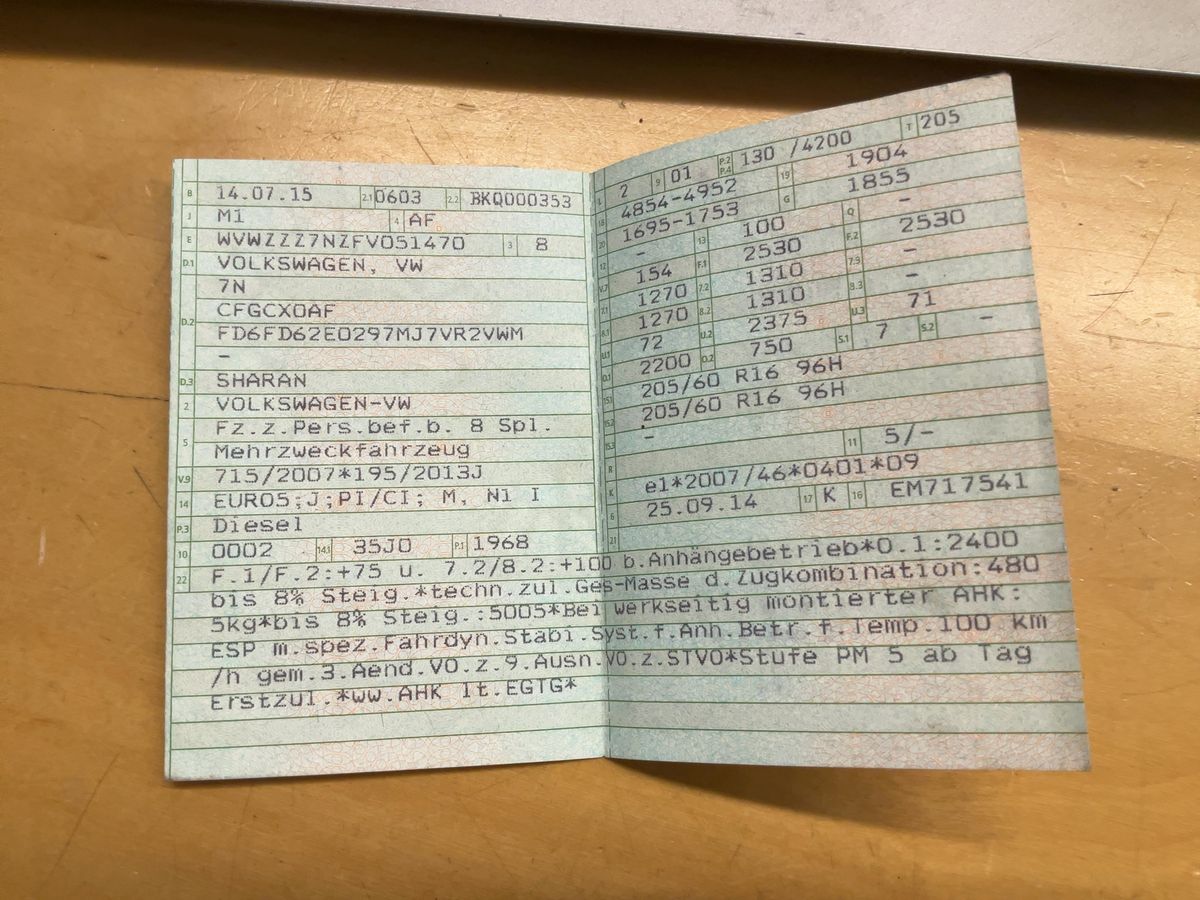 B 14.07.15 2.1 0603 2.2 BKQ000353
J M1 4 AF
E WVWZZZ7NZFV051470 3 8
D.1 VOLKSWAGEN, VW
7N
D.2 CFGCX0AF
FD6FD62E0297MJ7VR2VWM
–
D.3 SHARAN
2 VOLKSWAGEN-VW
5 Fz.z.Pers.bef.b. 8 Spl.
Mehrzweckfahrzeug
V.9 715/2007*195/2013J
14 EURO5;J;PI/CI; M, N1 I
P.3 Diesel
10 0002 14.1 35J0 P.1 1968
L 2 9 01 P.2 P.4 130 /4200 T 205
18 4854-4952 19 1904
20 1695-1753 G 1855
12 – 13 100 Q –
V.7 154 F.1 2530 F.2 2530
7.1 1270 7.2 1310 7.3 –
8.1 1270 8.2 1310 8.3 –
U.1 72 U.2 2375 U.3 71
O.1 2200 O.2 750 S.1 7 S.2 –
15.1 205/60 R16 96H
15.2 205/60 R16 96H
15.3 –
R 11 5/-
K e1*2007/46*0401*09
6 25.09.14 17 K 16 EM717541
21
22 F.1/F.2:+75 u. 7.2/8.2:+100 b.Anhängebetrieb*O.1:2400
bis 8% Steig.*techn.zul.Ges-Masse d.Zugkombination:480
5kg*bis 8% Steig.:5005*Bei werkseitig montierter AHK:
ESP m.spez.Fahrdyn.Stabi.Syst.f.Anh.Betr.f.Temp.100 km
/h gem.3.Aend.VO.z.9.Ausn.VO.z.STVO*Stufe PM 5 ab Tag
Erstzul.*ww.AHK lt.EGTG*